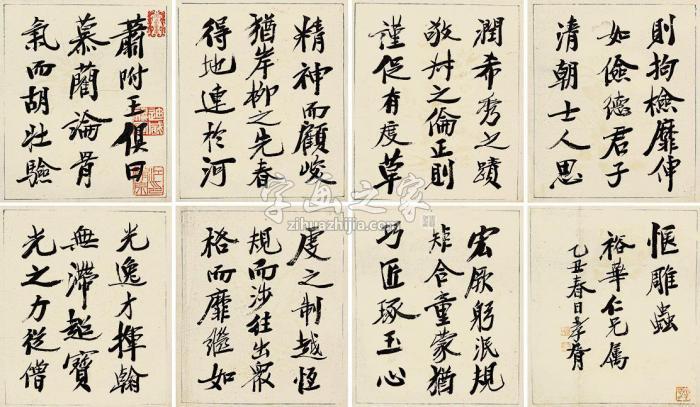 蕭附王俱曰
慕藺論骨
氣而胡壯驗
精神而顧峻
猶岸柳之先春
得地連於河
潤希秀之蹟
敬叔之倫正則
謹促有度草
則拘檢靡伸
如儉德君子
清朝士人思
光逸才揮翰
無滯超寶
光之力從僧
虔之制越恆
規而涉往出眾
格而靡繼如
宏厥躬泯規
矩合童蒙猶
巧匠琢玉心
愜雕蟲
裕華仁兄属
乙丑春日孝胥
字画之家
zihuazhijia.com